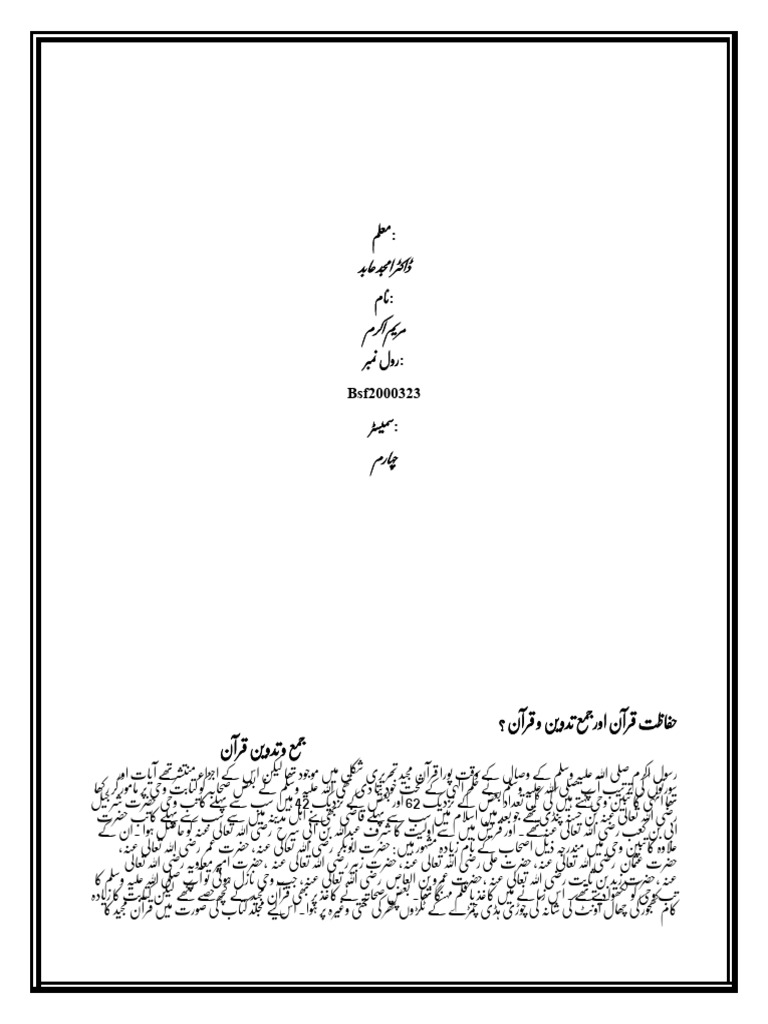 معلم:
ڈاکٹر امجد عابد
نام:
مریم اکرم
رول نمبر:
Bsf2000323
سمیسٹر:
چہارم
حفاظت قرآن اور جمع تدوین و قرآن ؟
جمع و تدوین قرآن
رسول اکرم صلی اللہ علیہ وسلم کے وصال کے وقت پورا قرآن مجید تحریری شکل میں موجود تھا لیکن اس کے اجزاء منتشر تھے آیات اور
سورتوں کی ترتیب آپ صلی اللہ علیہ وسلم نے حکم الہی کے تحت خود بنا دی تھی اللہ علیہ وسلم نے بعض صحابہ کو کتابت وحی پر مامور کر رکھا
تھا انہی کاتبین وحی کہتے ہیں کی کل تعداد بعض کے نزدیک 62 اور بعض کے نزدیک 42 ہیں سب سے پہلے کاتب وحی حضرت شرجیل
رضی اللہ تعالی عنہ بن حسنہ کندی تھے جو بعد میں اسلام میں سب سے پہلے قاضی بھی بنے اہل مدینہ میں سے سب سے پہلے کاتب حضرت
ابی بن کعب رضی اللہ تعالی عنہ تھے ۔ اور قریش میں سے اولیت کا شرف عبداللہ بن ابی سرح رضی اللہ تعالی عنہ کو حاصل ہوا۔ ان کے
علاوہ کاتبین وحی میں مندرجہ ذیل اصحاب کے نام زیادہ مشہور ہیں: حضرت ابوبکر رضی اللہ تعالی عنہ، حضرت عمر رضی اللہ تعالی عنہ،
حضرت عثمان رضی اللہ تعالی عنہ، حضرت علی رضی اللہ تعالی عنہ، حضرت زبیر رضی اللہ تعالی عنہ ،حضرت امیر معاویہ رضی اللہ تعالی
عنہ،حضرت زید بن ثابت رضی اللہ تعالی عنہ ،حضرت عمرو بن العاص رضی اللہ تعالی عنہ، جب وحی نازل ہوتی تو آپ صلی اللہ علیہ وسلم کا
تب وحی کو لکھوا دیتے تھے۔ اس زمانے میں کاغذ یا قلم مہنگا تھا۔ بعض صحابہ نے کاغذ پر بھی قرآن مجید کے کچھ حصے لکھے لیکن کتابت کا زیادہ
کام کھجور کی چھال اونٹ کی شانہ کی چوڑی ہڈی چمڑے کے ٹکڑوں پتھر کی تختی وغیرہ پر ہوا۔ اس لیے مجلد کتاب کی صورت میں قرآن مجید کا